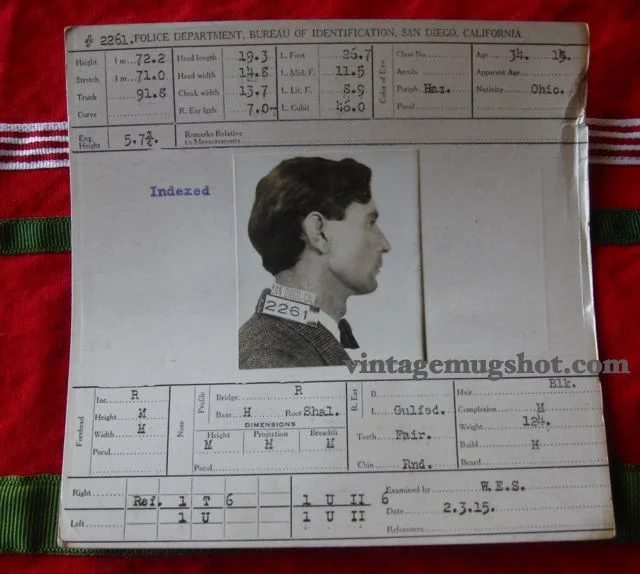 № 2261. POLICE DEPARTMENT, BUREAU OF IDENTIFICATION, SAN DIEGO, CALIFORNIA
Height 1 m 72.2 Head length 19.3 L. Foot 26.7 Class No. Age 34. 15.
Stretch 1 m 71.0 Head width 14.8 L. Mid. F. 11.5 Color of Eye Areola Apparent Age
Trunk 91.8 Cheek width 13.7 L. Lit. F. 8.9 Periph. Haz. Nativity Ohio.
Curve R. Ear lgth. 7.0- L. Cubit 46.0 Pecul.
Eng. Height 5.7¾ Remarks Relative to Measurements
Indexed
SAN DIEGO, CAL
2261
vintagemugshot.com
Forehead Inc. R Nose Profile Bridge R R. Ear B. Hair Blk.
Height M Base H Root Shal. L Gulfed. Complexion M
Width M DIMENSIONS Weight 124.
Pecul. Height M Projection M Breadth M Teeth Fair. Build M
Pecul. Chin Rnd. Beard
Right Ref. 1 T 6 1 U II 6 Examined by W.E.S.
Left 1 U 1 U II Date 2.3.15.
References